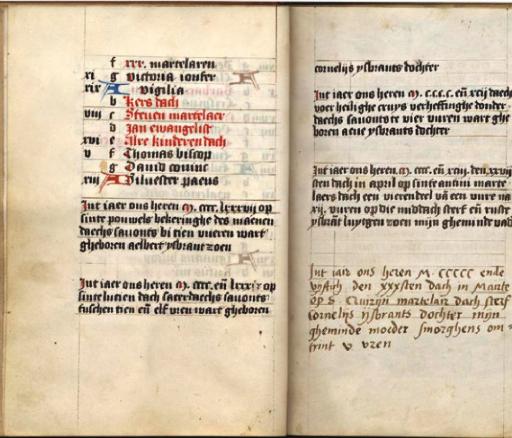 f xxx. martelaren
xi g Victoria ioufer
xix A Vigilia
b Kers dach
viii c Steuen martelaer
d Jan ewangelist
xvi e Alre kinderen dach
v f Thomas biscop
g Dauid coninc
xiii A Siluester paeus
Int iaer ons heren m. cccc. lxxxvii op
sinte pouwels bekeringhe des maenen
daechs sauonts bi tien vueren wart
gheboren aelbert ysbrant zoen
Int iaer ons heren m. cccc. en̄ lxxxix op
sinte lucien dach saterdaechs sauonts
tuschen tien en̄ elf vren wart gheboren
cornelijs ysbrants dochter
Int iaer ons heren m. c.c.c.c. en̄ xcij daechs
voer heilighe cruys verheffinghe donder
daechs sauonts te vier vuren wart ghe
boren aeue ysbrants dochter
Int iaer ons heren. m. cccc. en̄ xciij. den. xxvij
sten dach in april op sinte antini marte
laers dach een vierendel vā een vure na
xij. vuren op die middach sterf en̄ ruste
ysbrāt luytgen zoen mijn gheminde vad
Int iair ons heren M. CCCCC ende
vyftich den xxxsten dach in Marte
op S. Quirijn martelair dach sterf
Cornelijs ijsbrants dochter mijn
gheminde moeder smorghens om =
trint v vren